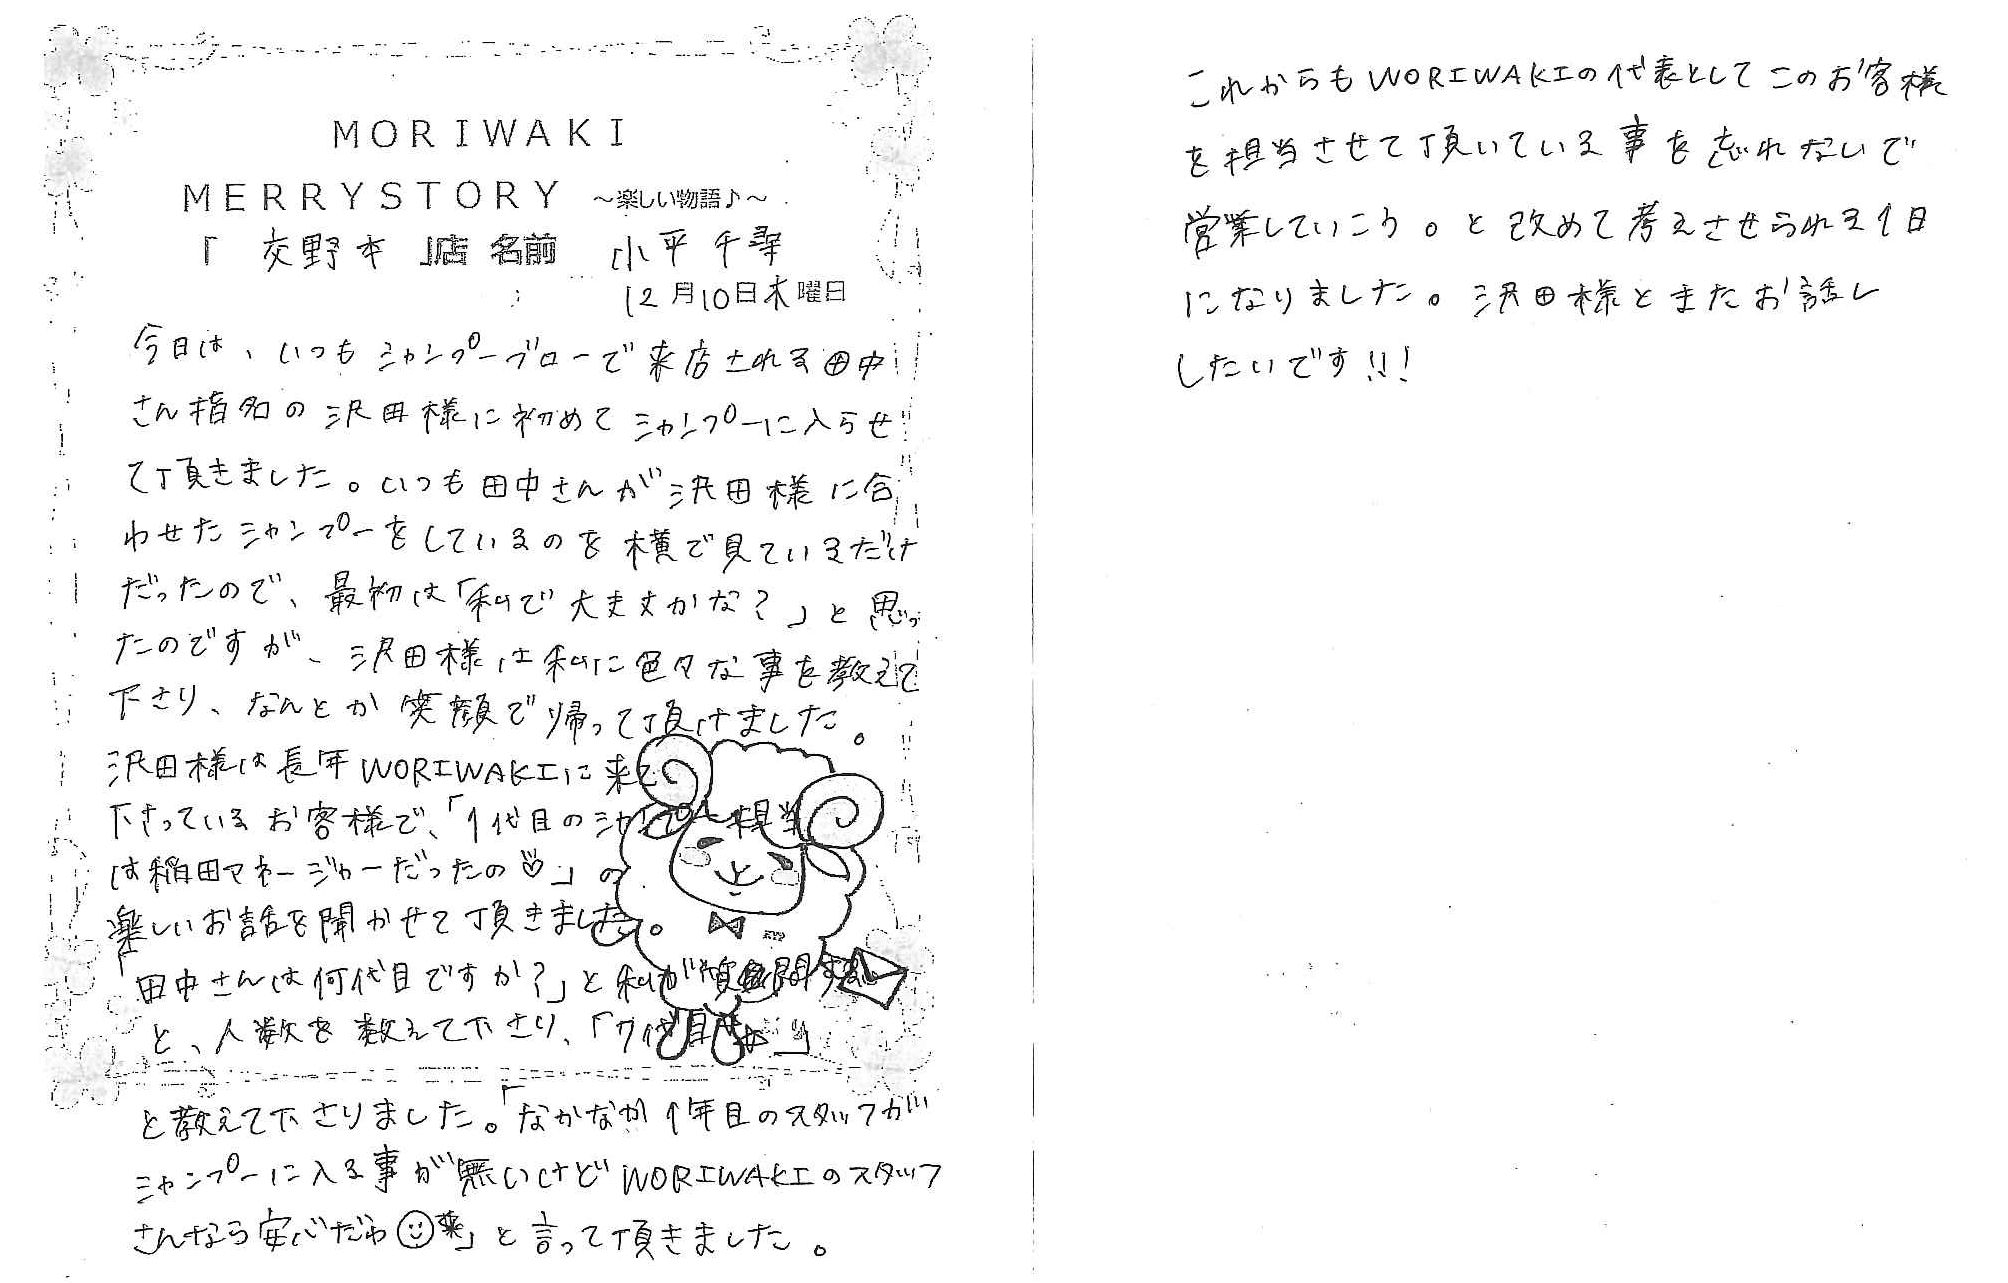 MORIWAKI
MERRYSTORY ～楽しい物語♪～
「 交野本 」店 名前 小平 千尋
12月10日木曜日
今日は、いつもシャンプーブローで来店される田中
さん指名の沢田様に初めてシャンプーに入らせ
て頂きました。いつも田中さんが沢田様に合
わせたシャンプーをしているのを横で見ているだけ
だったので、最初は「私で大丈丈かな？」と思っ
たのですが、沢田様は私に色々な事を教えて
下さり、なんとか笑顔で帰って頂けました。
沢田様は長年MORIWAKIに来て
下さっているお客様で、「1代目のシャンプー担当
は稲田マネージャーだったの♡」の
楽しいお話を聞かせて頂きました。
「田中さんは何代目ですか？」と私が質問する
と、人数を数えて下さり、「7代目」
と教えて下さりました。「なかなか1年目のスタッフが
シャンプーに入る事が無いけどMORIWAKIのスタッフ
さんなら安心だわ☺」と言って頂きました。
これからもMORIWAKIの代表としてこのお客様
を担当させて頂いている事を忘れないで
営業していこう。と改めて考えさせられる1日
になりました。沢田様とまたお話し
したいです!!!